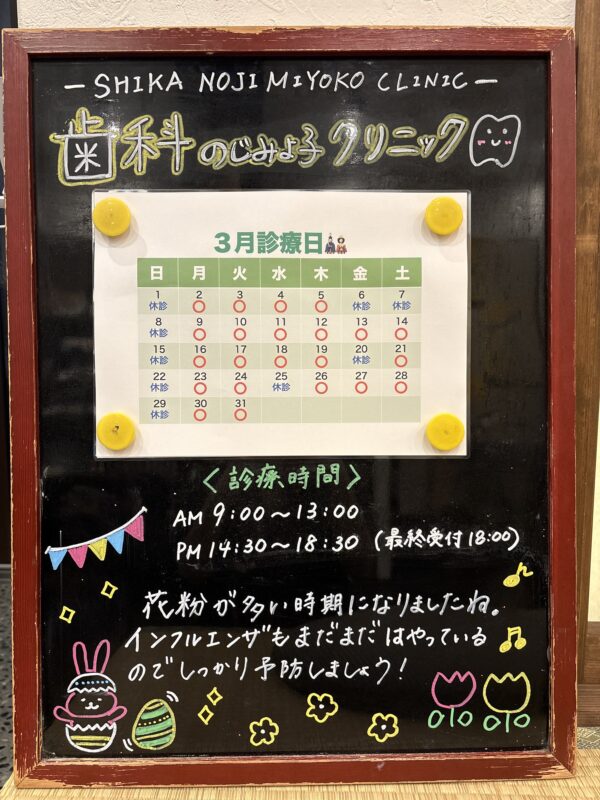 — SHIKA NOJI MIYOKO CLINIC —
歯科のじみよ子クリニック
3月診療日
日 月 火 水 木 金 土
1 2 3 4 5 6 7
休診 ○ ○ ○ ○ 休診 休診
8 9 10 11 12 13 14
休診 ○ ○ ○ ○ ○ ○
15 16 17 18 19 20 21
休診 ○ ○ ○ ○ 休診 ○
22 23 24 25 26 27 28
休診 ○ ○ 休診 ○ ○ ○
29 30 31
休診 ○ ○
〈診療時間〉
AM 9:00〜13:00
PM 14:30〜18:30 (最終受付18:00)
花粉が多い時期になりましたね。
インフルエンザもまだまだはやっている
のでしっかり予防しましょう!